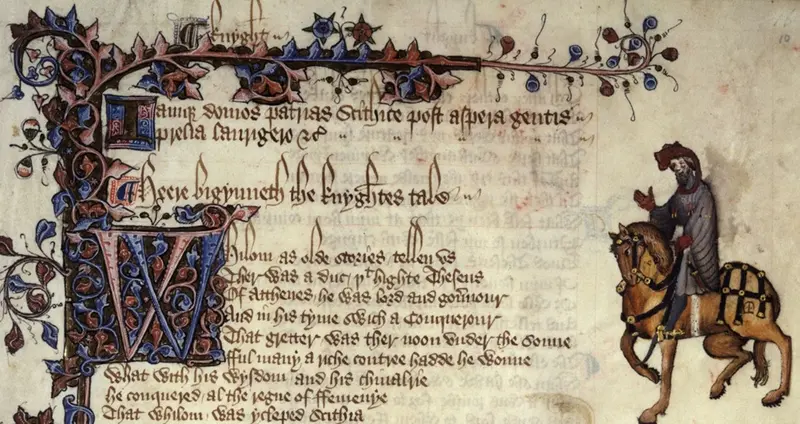 ¶ Knyght
Iamqȝ domos patrias Scithice post aspera gentis
prelia laurigero &c
¶ Heere bigynneth the knyghtes tale
Whilom as olde stories tellen vs
Ther was a duc þᵗ highte Theseus
Of Atthenes he was lord and gouernour
And in his tyme swich a Conquerour
That gretter was ther noon vnder the sonne
fful many a riche contree hadde he wonne
What with his wysdom and his chiualrie
he conquered al the regne of ffemenye
That whilom was ycleped Scithia